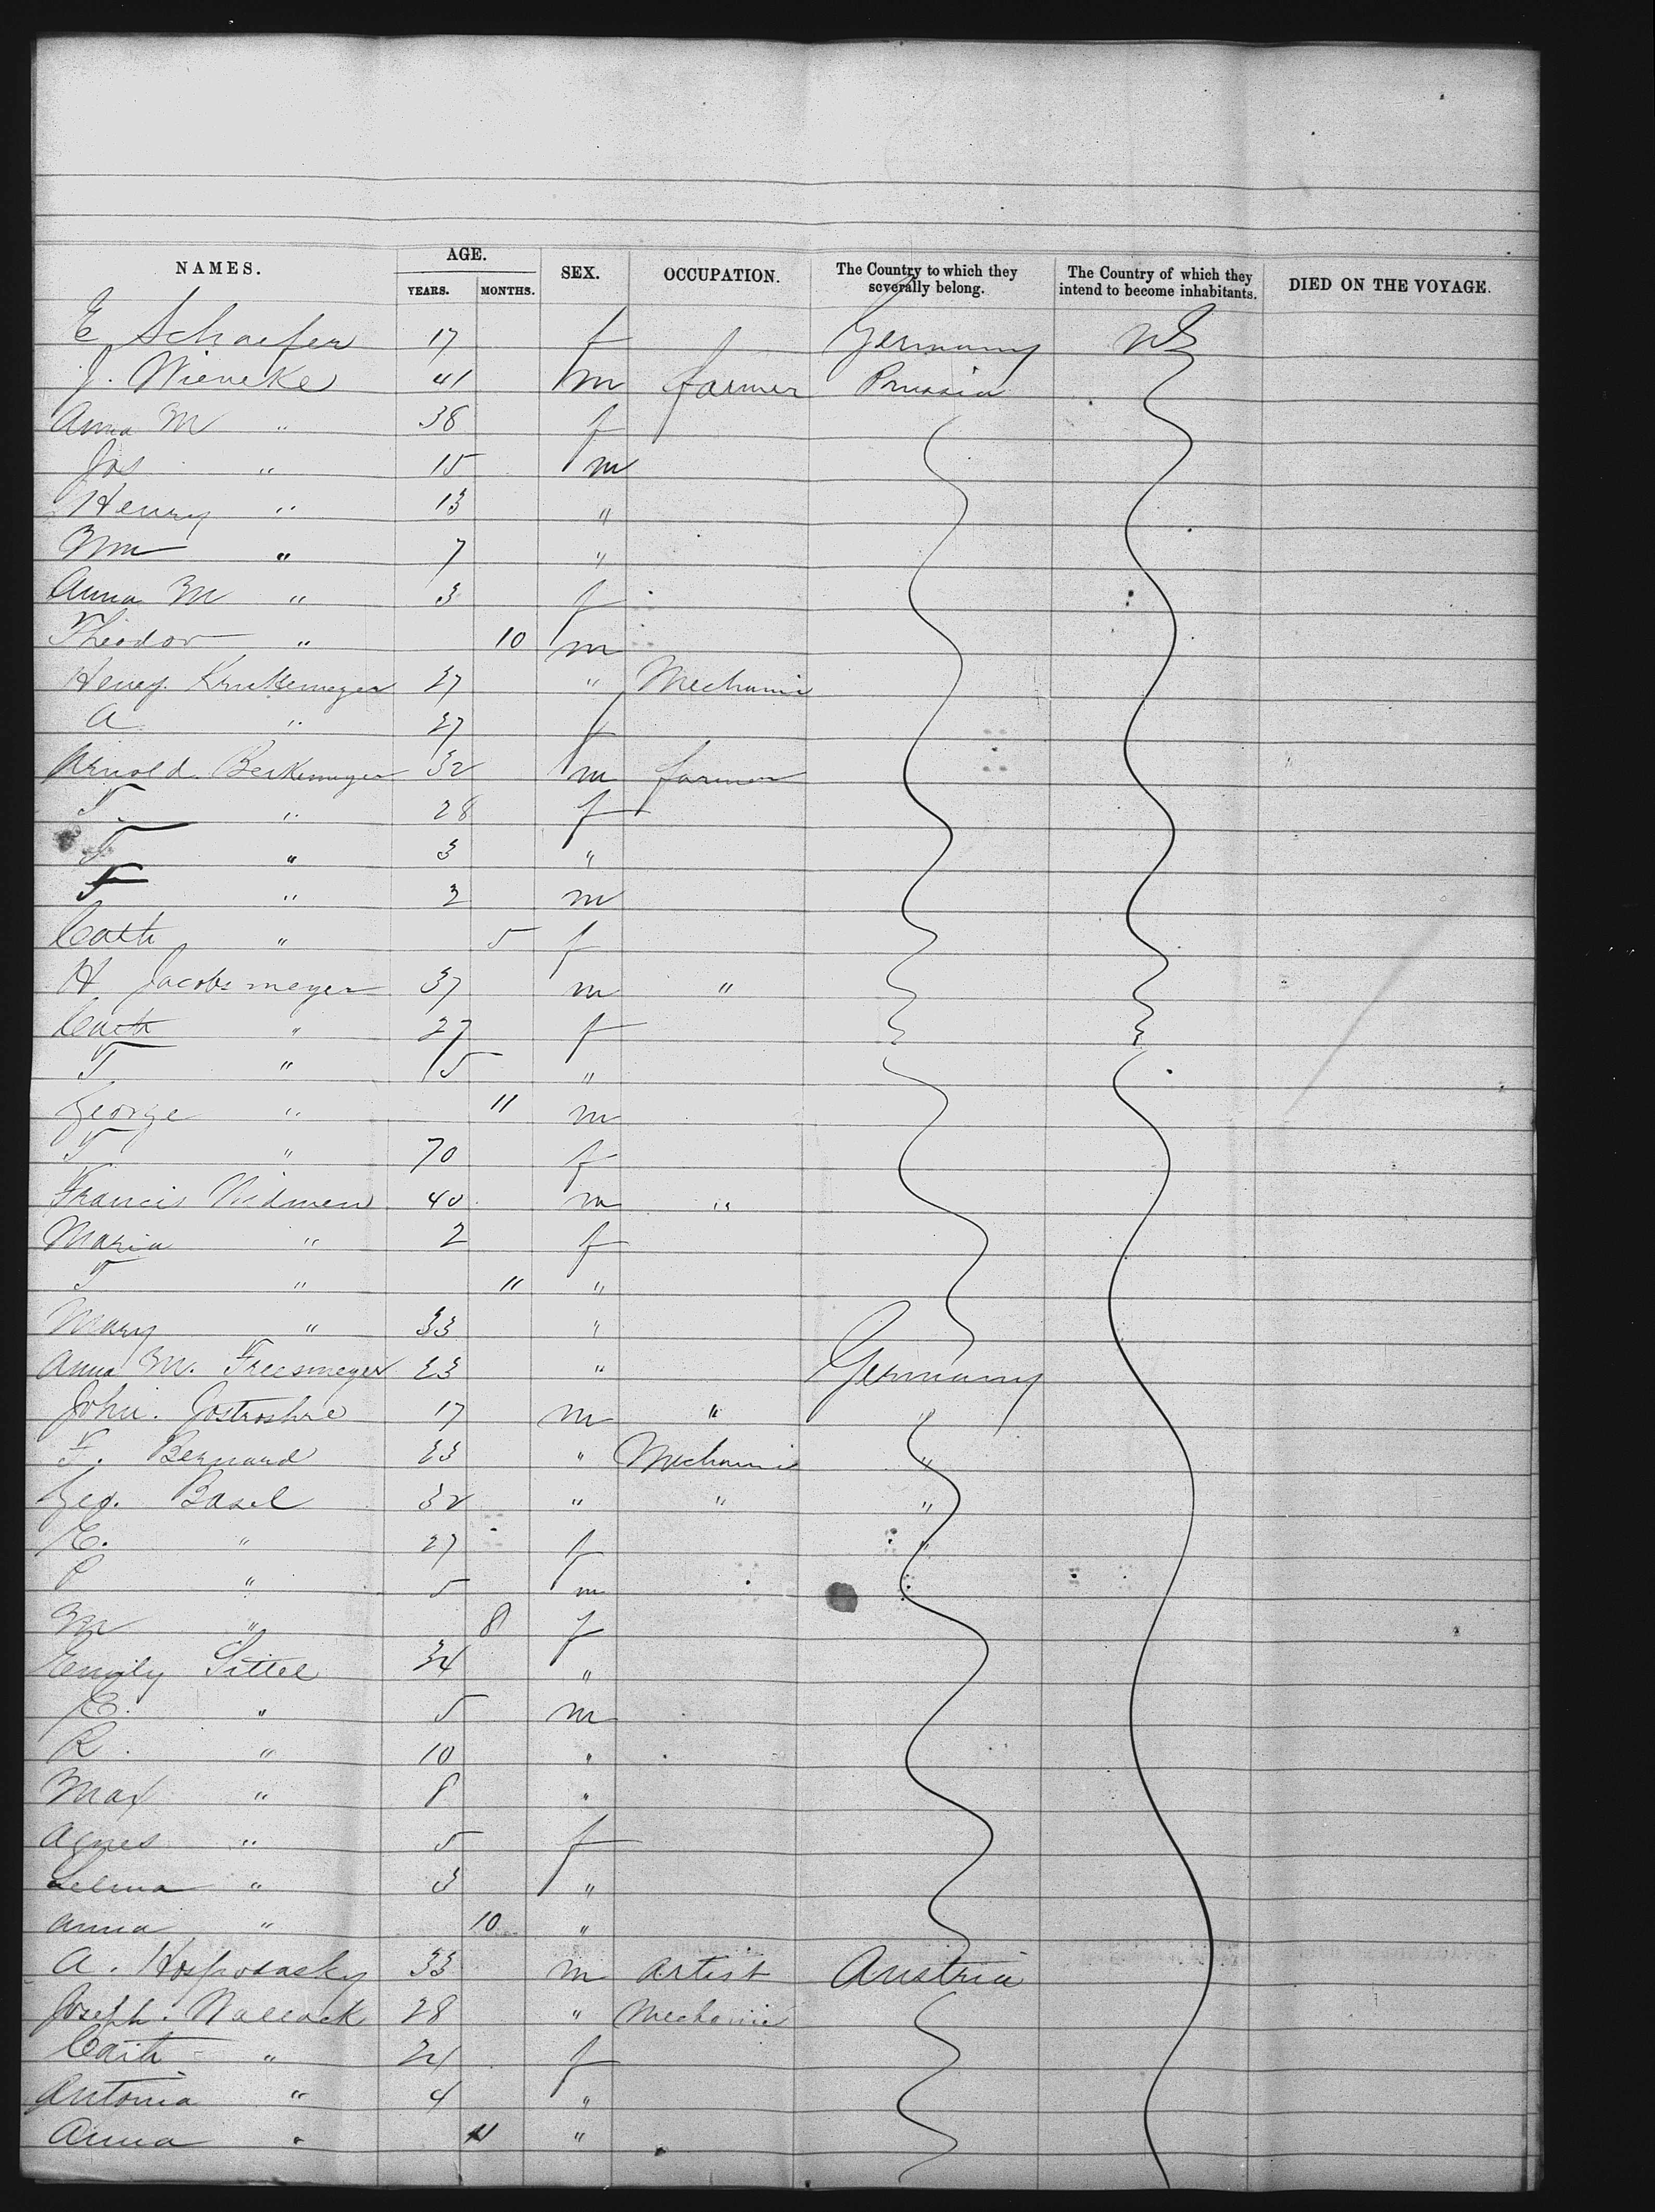 NAMES. AGE. SEX. OCCUPATION. The Country to which they severally belong. The Country of which they intend to become inhabitants. DIED ON THE VOYAGE.
YEARS. MONTHS.
E Schaefer 17 f Germany
J. Wieneke 41 m farmer Prussia
Anna M " 38 f
Jos " 15 m
Henry " 13 "
Wm " 7 "
Anna M " 3 f
Theodor " 10 m
Henry Krukemeyer 27 " Mechanic
A " 27 f
Arnold Berkemeyer 32 m farmer
T. " 28 f
T " 3 "
F " 2 m
Cath " 5 f
H Jacobsmeyer 37 m "
Cath " 27 f
T " 15 "
George " 11 m
T " 70 f
Francis 40 m "
Maria " 2 f
T " 11 "
Mary " 33 "
Anna M. Freesmeyer 23 " Germany
John. 17 m " "
F. Bernard 23 " Mechanic "
Geo. Basel 32 " " "
E. " 27 f "
P " 5 m
M " 8 f
Emily Sittel 34 "
E. " 5 m
R. " 10 "
Max " 8 "
Agnes " 5 f
Selma " 3 "
Anna " 10 "
A. Hospodasky 33 m Artist Austria
Joseph. 28 " Mechanic
Cath " 24 f
Antonia " 4 "
Anna " 11 "